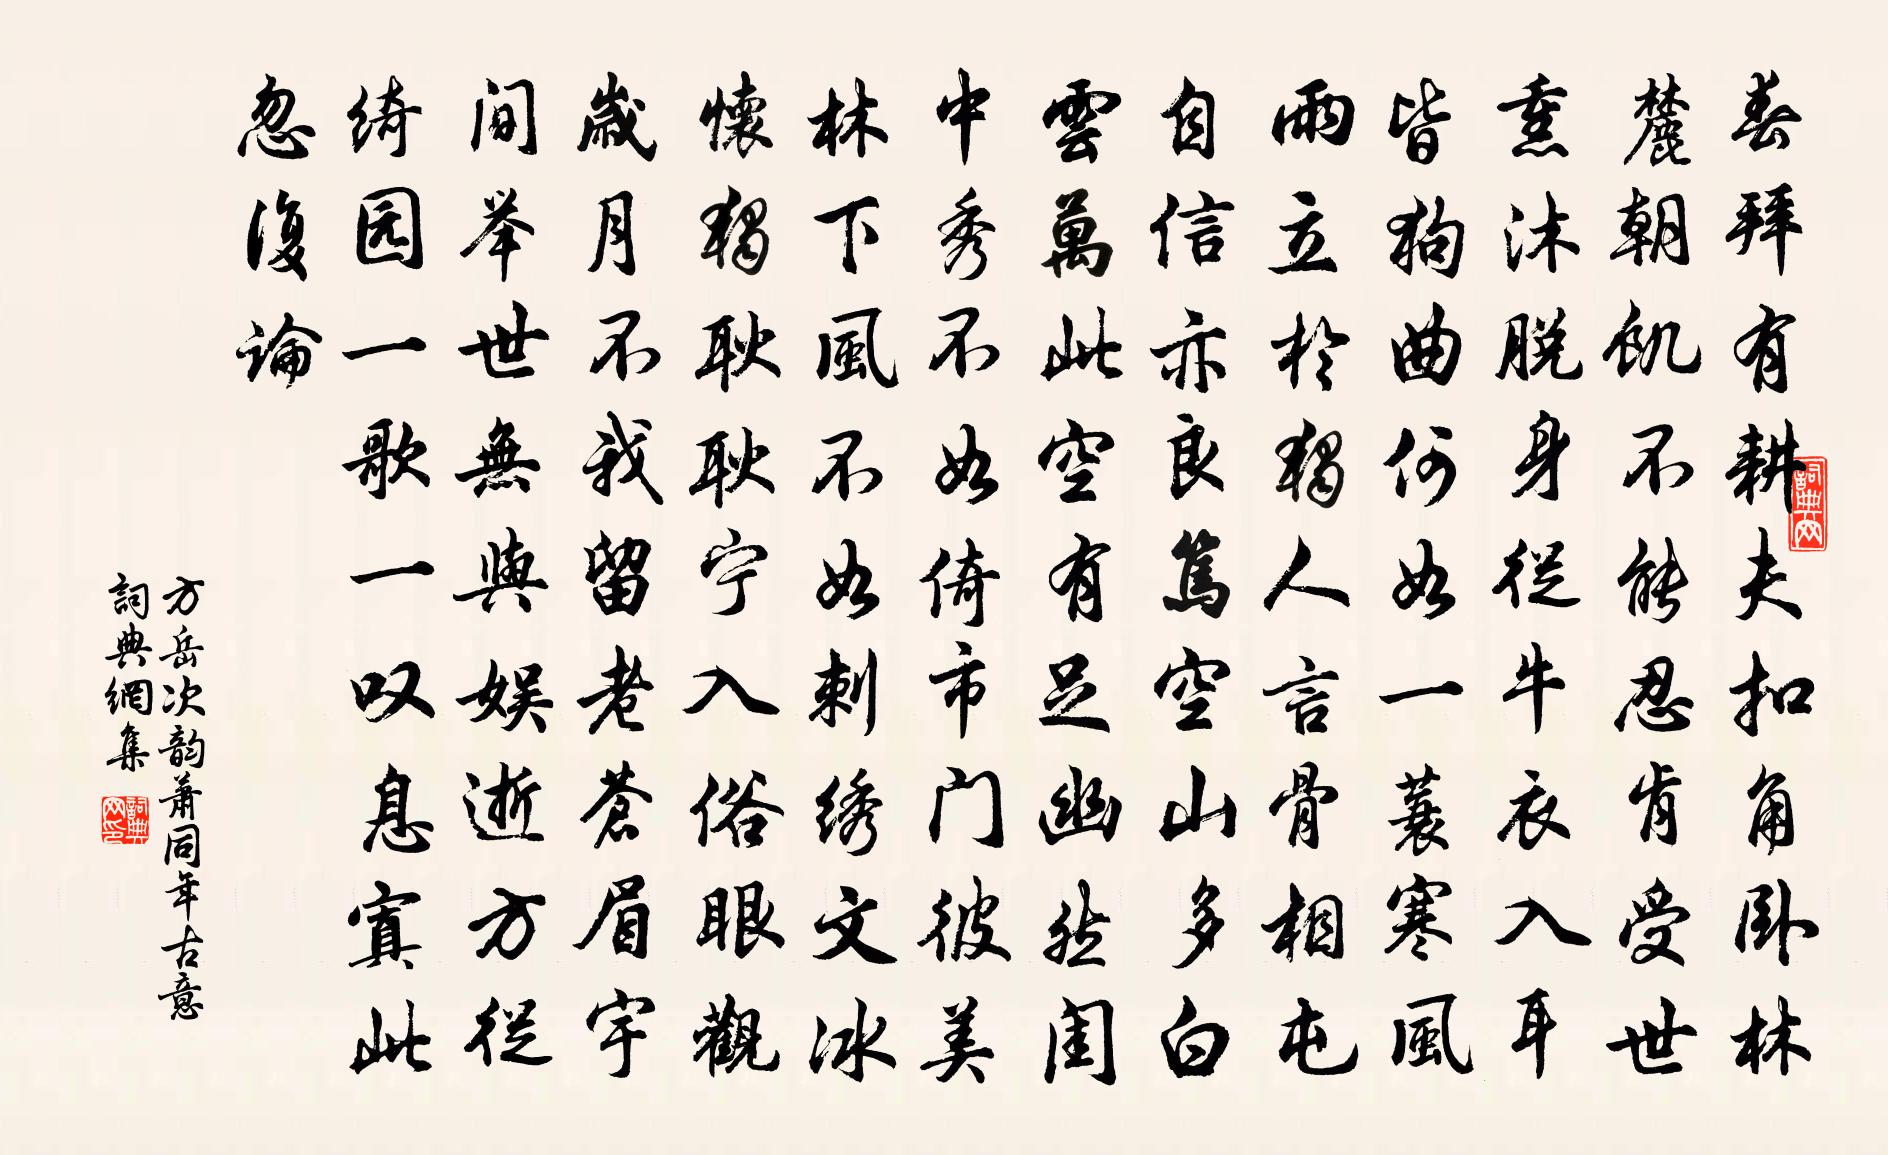 春拜有耕夫扣角卧林
麓朝飢不能忍肯受世
熏沐脱身從牛衣入耳
皆狗曲何如一蓑寒風
雨立於獨人言骨相屯
自信亦良篤空山多白
雲萬此空有足幽然闺
中秀不如倚市门彼美
林下風不如刺绣文冰
懷獨耿耿宁入俗眼觀
歲月不我留老蒼眉宇
间举世無與娱逝方從
绮园一歌一叹息寘此
忽復論
方岳次韵萧同年古意
詞典網集
詞典网
詞典网印